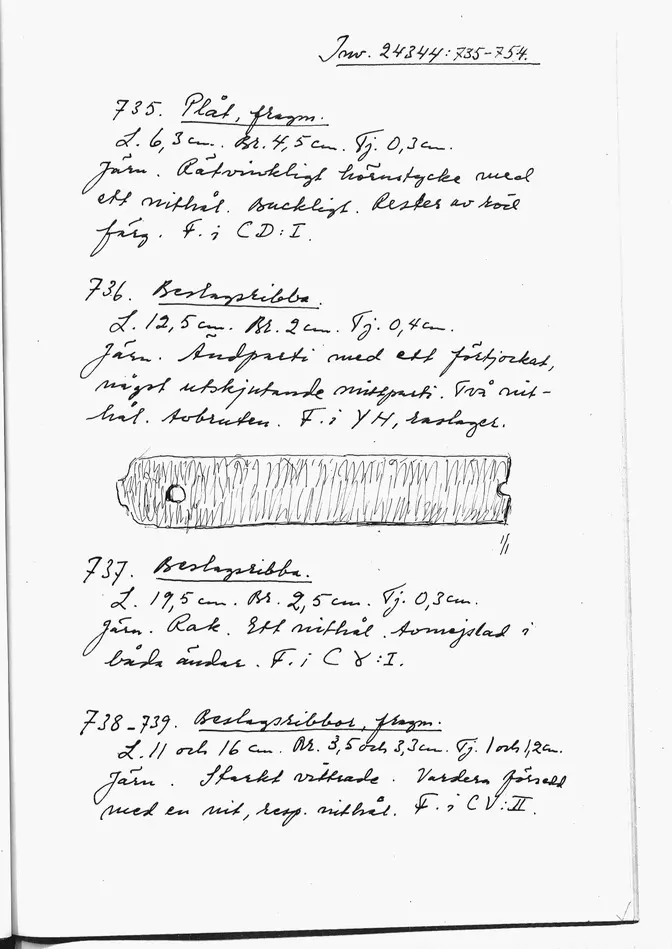 Inv. 24344:735-754.
735. Plåt, fragm.
L. 6,3 cm. Br. 4,5 cm. Tj. 0,3 cm.
Järn. Rätvinkligt hörnstycke med
ett nithål. Buckligt. Rester av röd
färg. F. i CD:I.
736. Beslagsribba.
L. 12,5 cm. Br. 2 cm. Tj. 0,4 cm.
Järn. Ändparti med ett förtjockat,
något utskjutande mittparti. Två nit-
hål. Avbruten. F. i YH, raslager.
1/1
737. Beslagsribba.
L. 19,5 cm. Br. 2,5 cm. Tj. 0,3 cm.
Järn. Rak. Ett nithål. Avmejslad i
båda ändar. F. i C :I.
738-739. Beslagsribbor, fragm.
L. 11 och 16 cm. Br. 3,5 och 3,3 cm. Tj. 1 och 1,2 cm.
Järn. Starkt vittrade. Vardera försedd
med en nit, resp. nithål. F. i CV:II.